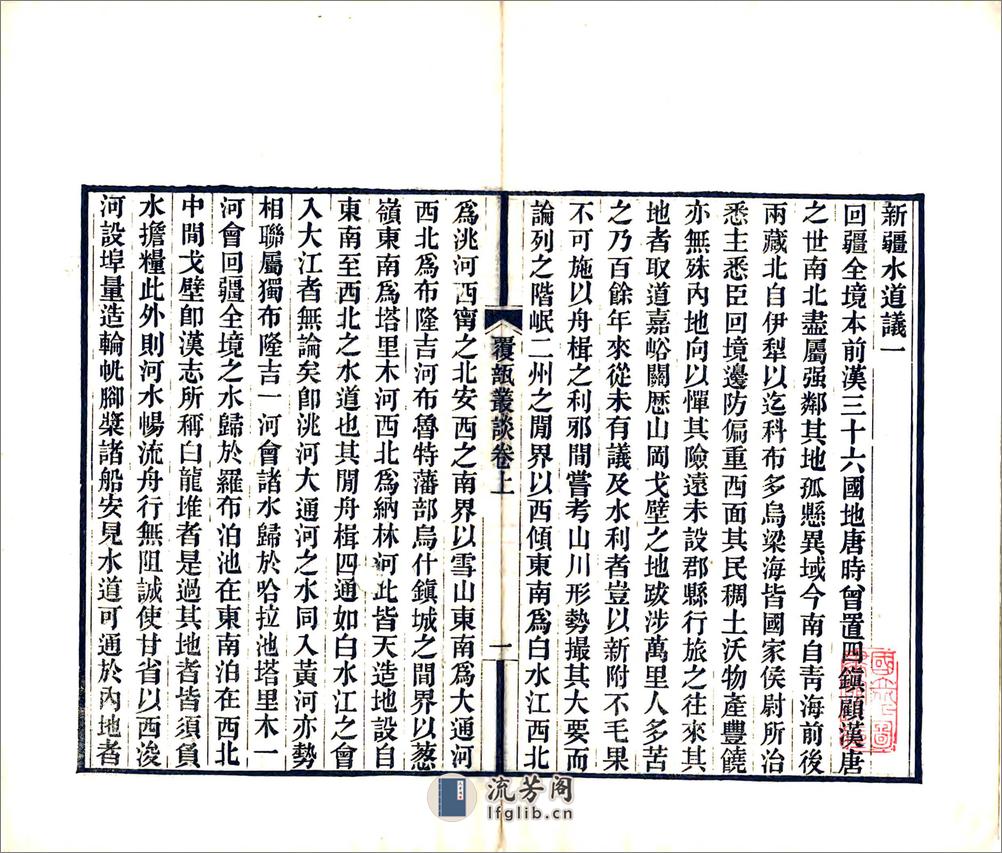 新疆水道議一
回疆全境本前漢三十六國地唐時曾置四鎮顧漢唐
之世南北盡屬强鄰其地孤懸異域今南自青海前後
兩藏北自伊犁以迄科布多烏梁海皆國家侯尉所治
悉主悉臣回境邊防偏重西面其民稠土沃物產豐饒
亦無殊內地向以憚其險遠未設郡縣行旅之往來其
地者取道嘉峪關歷山岡戈壁之地跋涉萬里人多苦
之乃百餘年來從未有議及水利者豈以新附不毛果
不可施以舟楫之利邪閒嘗考山川形勢撮其大要而
論列之階岷二州之閒界以西傾東南爲白水江西北
覆瓿叢談卷上
一
爲洮河西甯之北安西之南界以雪山東南爲大通河
西北爲布隆吉河布魯特藩部烏什鎮城之間界以葱
嶺東南爲塔里木河西北爲納林河此皆天造地設自
東南至西北之水道也其閒舟楫四通如白水江之會
入大江者無論矣卽洮河大通河之水同入黃河亦勢
相聯屬獨布隆吉一河會諸水歸於哈拉池塔里木一
河會回疆全境之水歸於羅布泊池在東南泊在西北
中間戈壁卽漢志所稱白龍堆者是過其地者皆須負
水擔糧此外則河水暢流舟行無阻誠使甘省以西浚
河設埠量造輪帆腳槳諸船安見水道可通於內地者
流芳阁
lfglib.cn